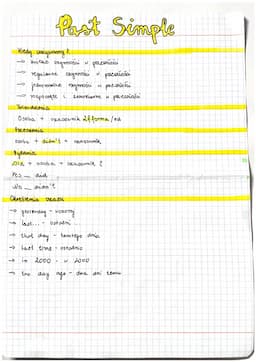 Past Simple
Kiedy używamy?
→ krótkie czynności w przeszłości
→ regularne czynności w przeszłości
→ jednorazowe czynności w przeszłości
→ rozpoczęte i zakończone w przeszłości
Twierdzenia
Osoba + czasownik 2forma/ed
Przeczenia
osoba + didn't + czasownik
Pytania
Did + osoba + czasownik?
Yes __ did
No __ didn't
Określenia czasu
→ yesterday - wczoraj
→ last... - ostatni...
→ that day - tamtego dnia
→ last time - ostatnio
→ in 2000 - w 2000
→ two day ago - dwa dni temu